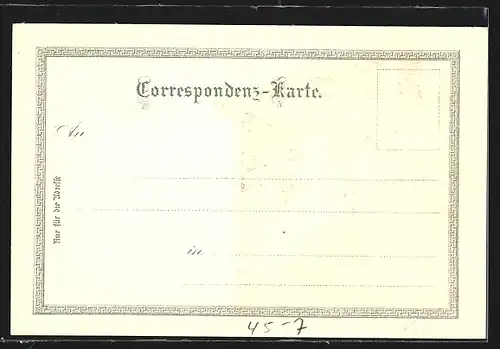 Correspondenz-Karte.
An
Nur für die Adresse
in
45-7